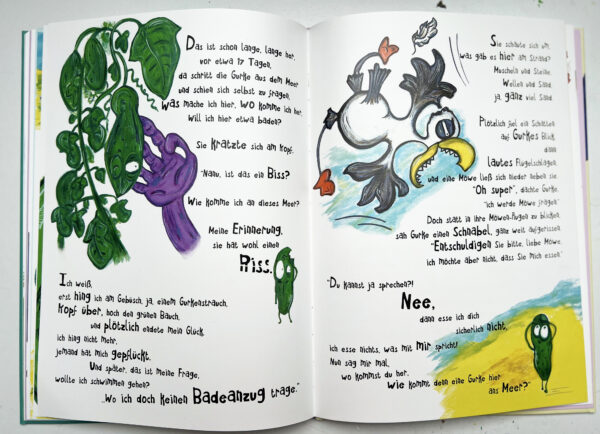 Das ist schon lange, lange her,
vor etwa 17 Tagen,
da schritt die Gurke aus dem Meer
und schien sich selbst zu fragen,
Was mache ich hier, wo komme ich her,
will ich hier etwa baden?
Sie kratzte sich am Kopf:
"Nanu, ist das ein Biss?
Wie komme ich an dieses Meer?
Meine Erinnerung,
sie hat wohl einen
Riss.
Ich weiß,
erst hing ich am Gebüsch, ja, einem Gurkenstrauch,
Kopf über, hoch den grünen Bauch,
und plötzlich endete mein Glück,
ich hing nicht mehr,
jemand hat mich gepflückt.
Und später, das ist meine Frage,
wollte ich schwimmen gehen?
Wo ich doch keinen Badeanzug trage."
Sie schaute sich um,
was gab es hier am Strand?
Muscheln und Steine,
Wellen und Sand,
ja, ganz viel Sand.
Plötzlich fiel ein Schatten
auf Gurkes Blick,
dann
lautes Flügelschlagen,
und eine Möwe ließ sich nieder neben sie.
"Oh super", dachte Gurke,
"ich werde Möwe fragen."
Doch statt in ihre Möwen-Augen zu blicken,
sah Gurke einen Schnabel, ganz weit aufgerissen.
"Entschuldigen Sie bitte, liebe Möwe,
ich möchte aber nicht, dass Sie mich essen."
"Du kannst ja sprechen?!
Nee,
dann esse ich dich
sicherlich nicht,
ich esse nichts, was mit mir spricht!
Nun sag mir mal,
wo kommst du her,
wie kommt denn eine Gurke hier
ans Meer?"